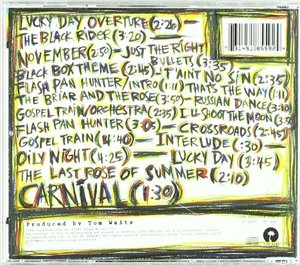 LUCKY DAY OVERTURE (2:26) —
THE BLACK RIDER (3:20) —
NOVEMBER (2:50) — JUST THE RIGHT
BULLETS (3:35) —
BLACK BOX THEME (2:45) — T'AIN'T NO SIN (2:35)
FLASH PAN HUNTER/INTRO (1:11) THAT'S THE WAY (1:11)
THE BRIAR AND THE ROSE (3:50) — RUSSIAN DANCE (3:10)
GOSPEL TRAIN/ORCHESTRA (2:35) I'LL SHOOT THE MOON (3:50)
FLASH PAN HUNTER (3:05) — CROSSROADS (2:45)
GOSPEL TRAIN (4:40) — INTERLUDE (:30) —
OILY NIGHT (4:25) — LUCKY DAY (3:45)
THE LAST ROSE OF SUMMER (2:10)
CARNIVAL (1:30)
Produced by Tom Waits